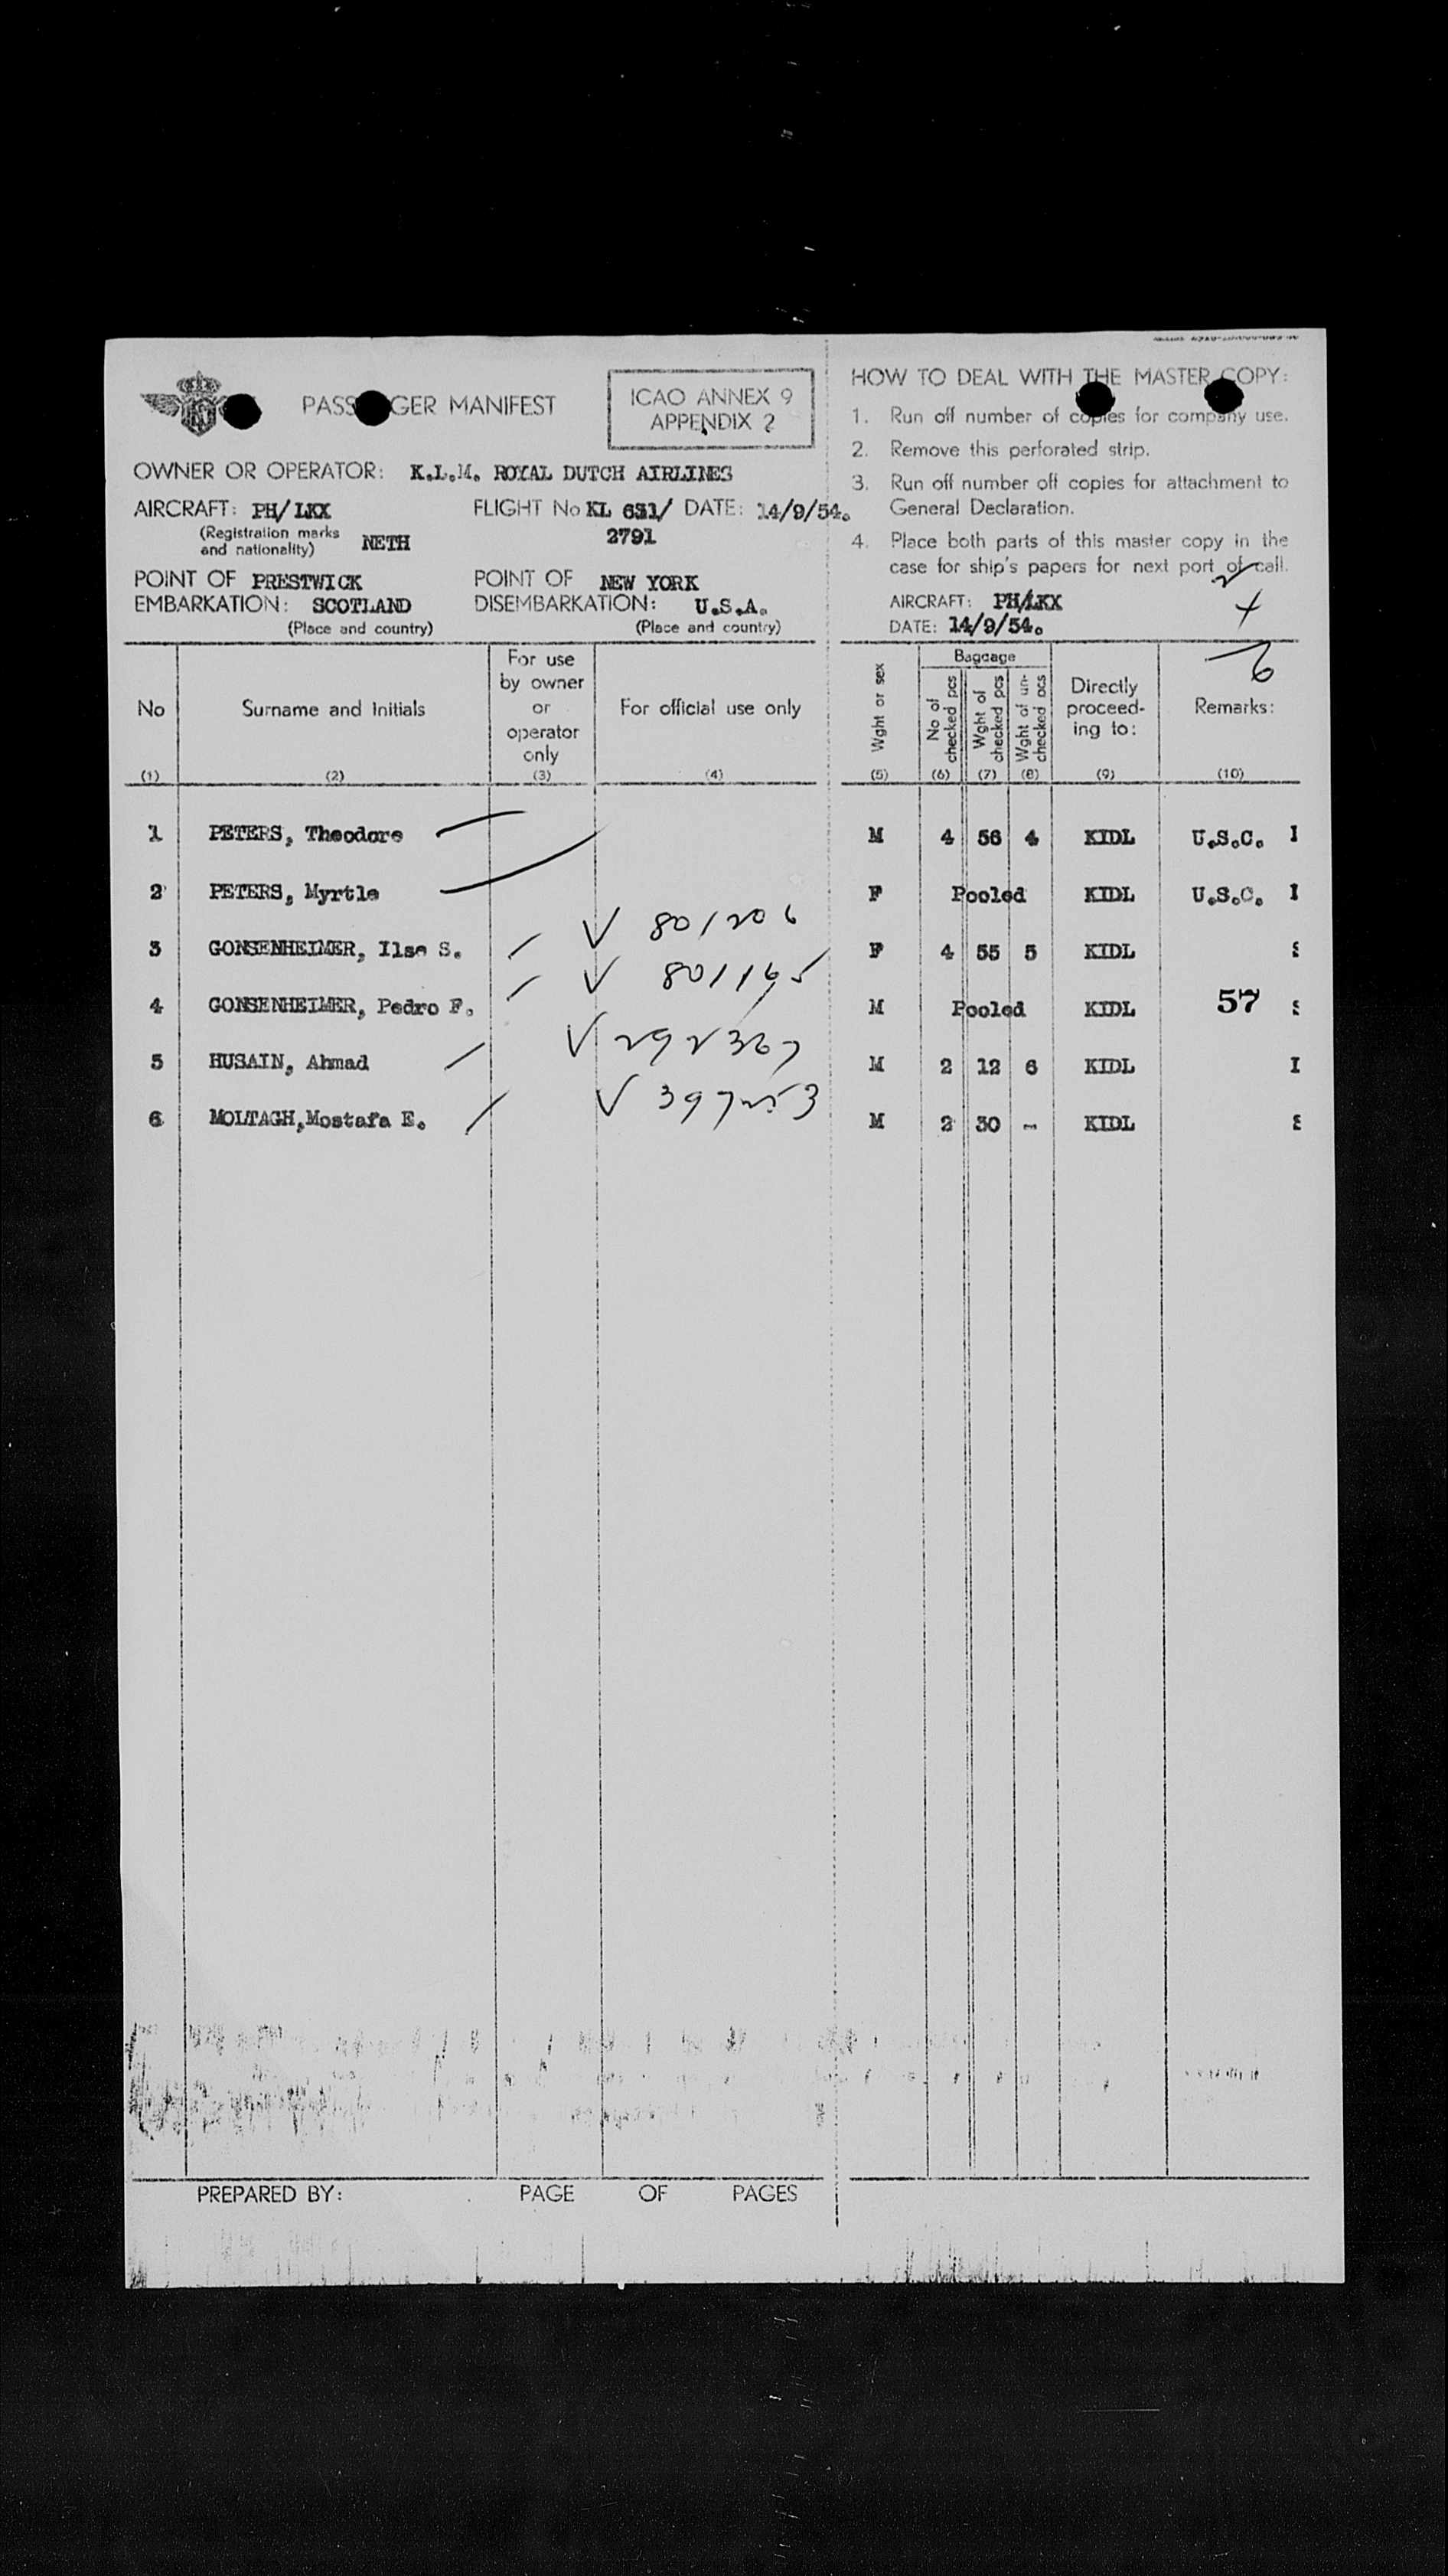 PASS GER MANIFEST
ICAO ANNEX 9
APPENDIX 2
OWNER OR OPERATOR: K.L.M. ROYAL DUTCH AIRLINES
AIRCRAFT: PH/LKX FLIGHT No KL 631/ DATE: 14/9/54.
(Registration marks and nationality) NETH 2791
POINT OF PRESTWICK POINT OF NEW YORK
EMBARKATION: SCOTLAND DISEMBARKATION: U.S.A.
(Place and country) (Place and country)
HOW TO DEAL WITH THE MASTER COPY:
1. Run off number of copies for company use.
2. Remove this perforated strip.
3. Run off number off copies for attachment to
General Declaration.
4. Place both parts of this master copy in the
case for ship's papers for next port of call.
AIRCRAFT: PH/LKX
DATE: 14/9/54.
2
4
6
No Surname and Initials For use by owner or operator only For official use only Wght or sex Baggage No of checked pcs Wght of checked pcs Wght of un-checked pcs Directly proceed-ing to: Remarks:
(1) (2) (3) (4) (5) (6) (7) (8) (9) (10)
1 PETERS, Theodore M 4 56 4 KIDL U.S.C. I
2 PETERS, Myrtle F Pooled KIDL U.S.C. I
3 GONSENHEIMER, Ilse S. 801206 F 4 55 5 KIDL
4 GONSENHEIMER, Pedro F. 801195 M Pooled KIDL 57
5 HUSAIN, Ahmad 292367 M 2 12 6 KIDL I
6 MOLTAGH,Mostafa E. 397253 M 2 30 - KIDL
PREPARED BY: PAGE OF PAGES